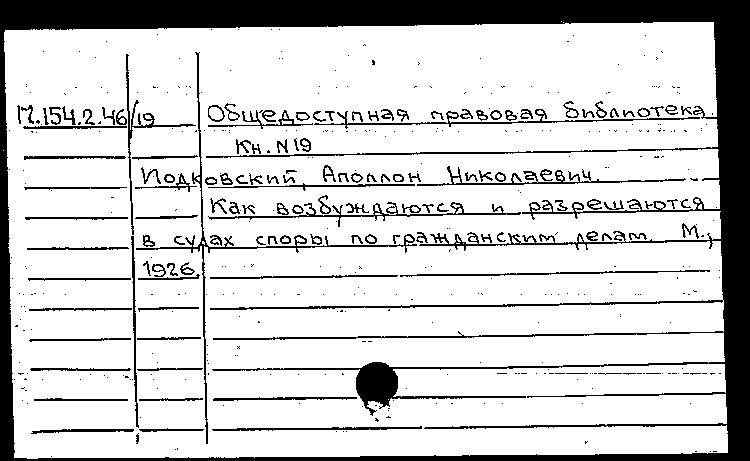 17.154.2.46/19 Общедоступная правовая библиотека.
Кн. N 19
Иодковский, Аполлон Николаевич.
Как возбуждаются и разрешаются
в судах споры по гражданским делам. М.,
1926.